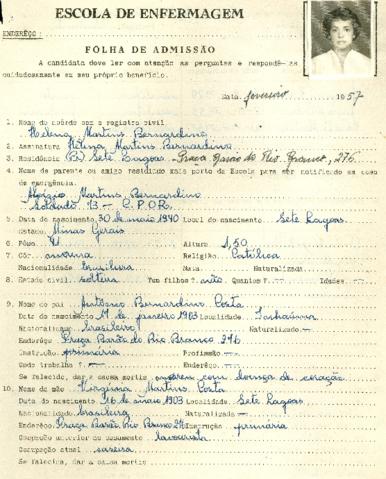 ESCOLA DE ENFERMAGEM
ENDERÊÇO:
FOLHA DE ADMISSÃO
A candidata deve ler com atenção as perguntas e responde-as
cuidadosamente em seu próprio benefício.
Data, fevereiro 1957
1. Nome de acôrdo com o registro civil
Helena Martins Bernardino
2. Assinatura Helena Martins Bernardino
3. Residência (B) Sete Lagoas - Praça Barão do Rio Branco, 276
4. Nome de parente ou amigo residente mais perto da Escola para ser notificado em caso
de emergência.
Martins Bernardino
Soldado 73 - C.P.O.R.
5. Data do nascimento 30 de maio 1940 Local do nascimento Sete Lagoas
Estado: Minas Gerais
6. Pêso 41 Altura 1,50
7. Côr morena Religião Católica
Nacionalidade brasileira Nata Naturalizada
8. Estado civil solteira Tem filhos? não Quantos? Idades
9. Nome do pai Antônio Bernardino Costa
Data do nascimento de janeiro 1903 Localidade
Nacionalidade brasileiro Naturalizado
Endereço Praça Barão do Rio Branco 276
Instrução primária Profissão
Onde trabalha? Enderêço
Se falecido, dar a causa mortis morreu com doença de coração
10. Nome da mãe Virgínia Martins Costa
Data do nascimento 16 de maio 1903 Localidade Sete Lagoas
Nacionalidade brasileira Naturalizada
Enderêço Praça Barão Rio Branco 276 Instrução primária
Ocupação anterior ao casamento
Ocupação atual
Se falecida, dar a causa mortis